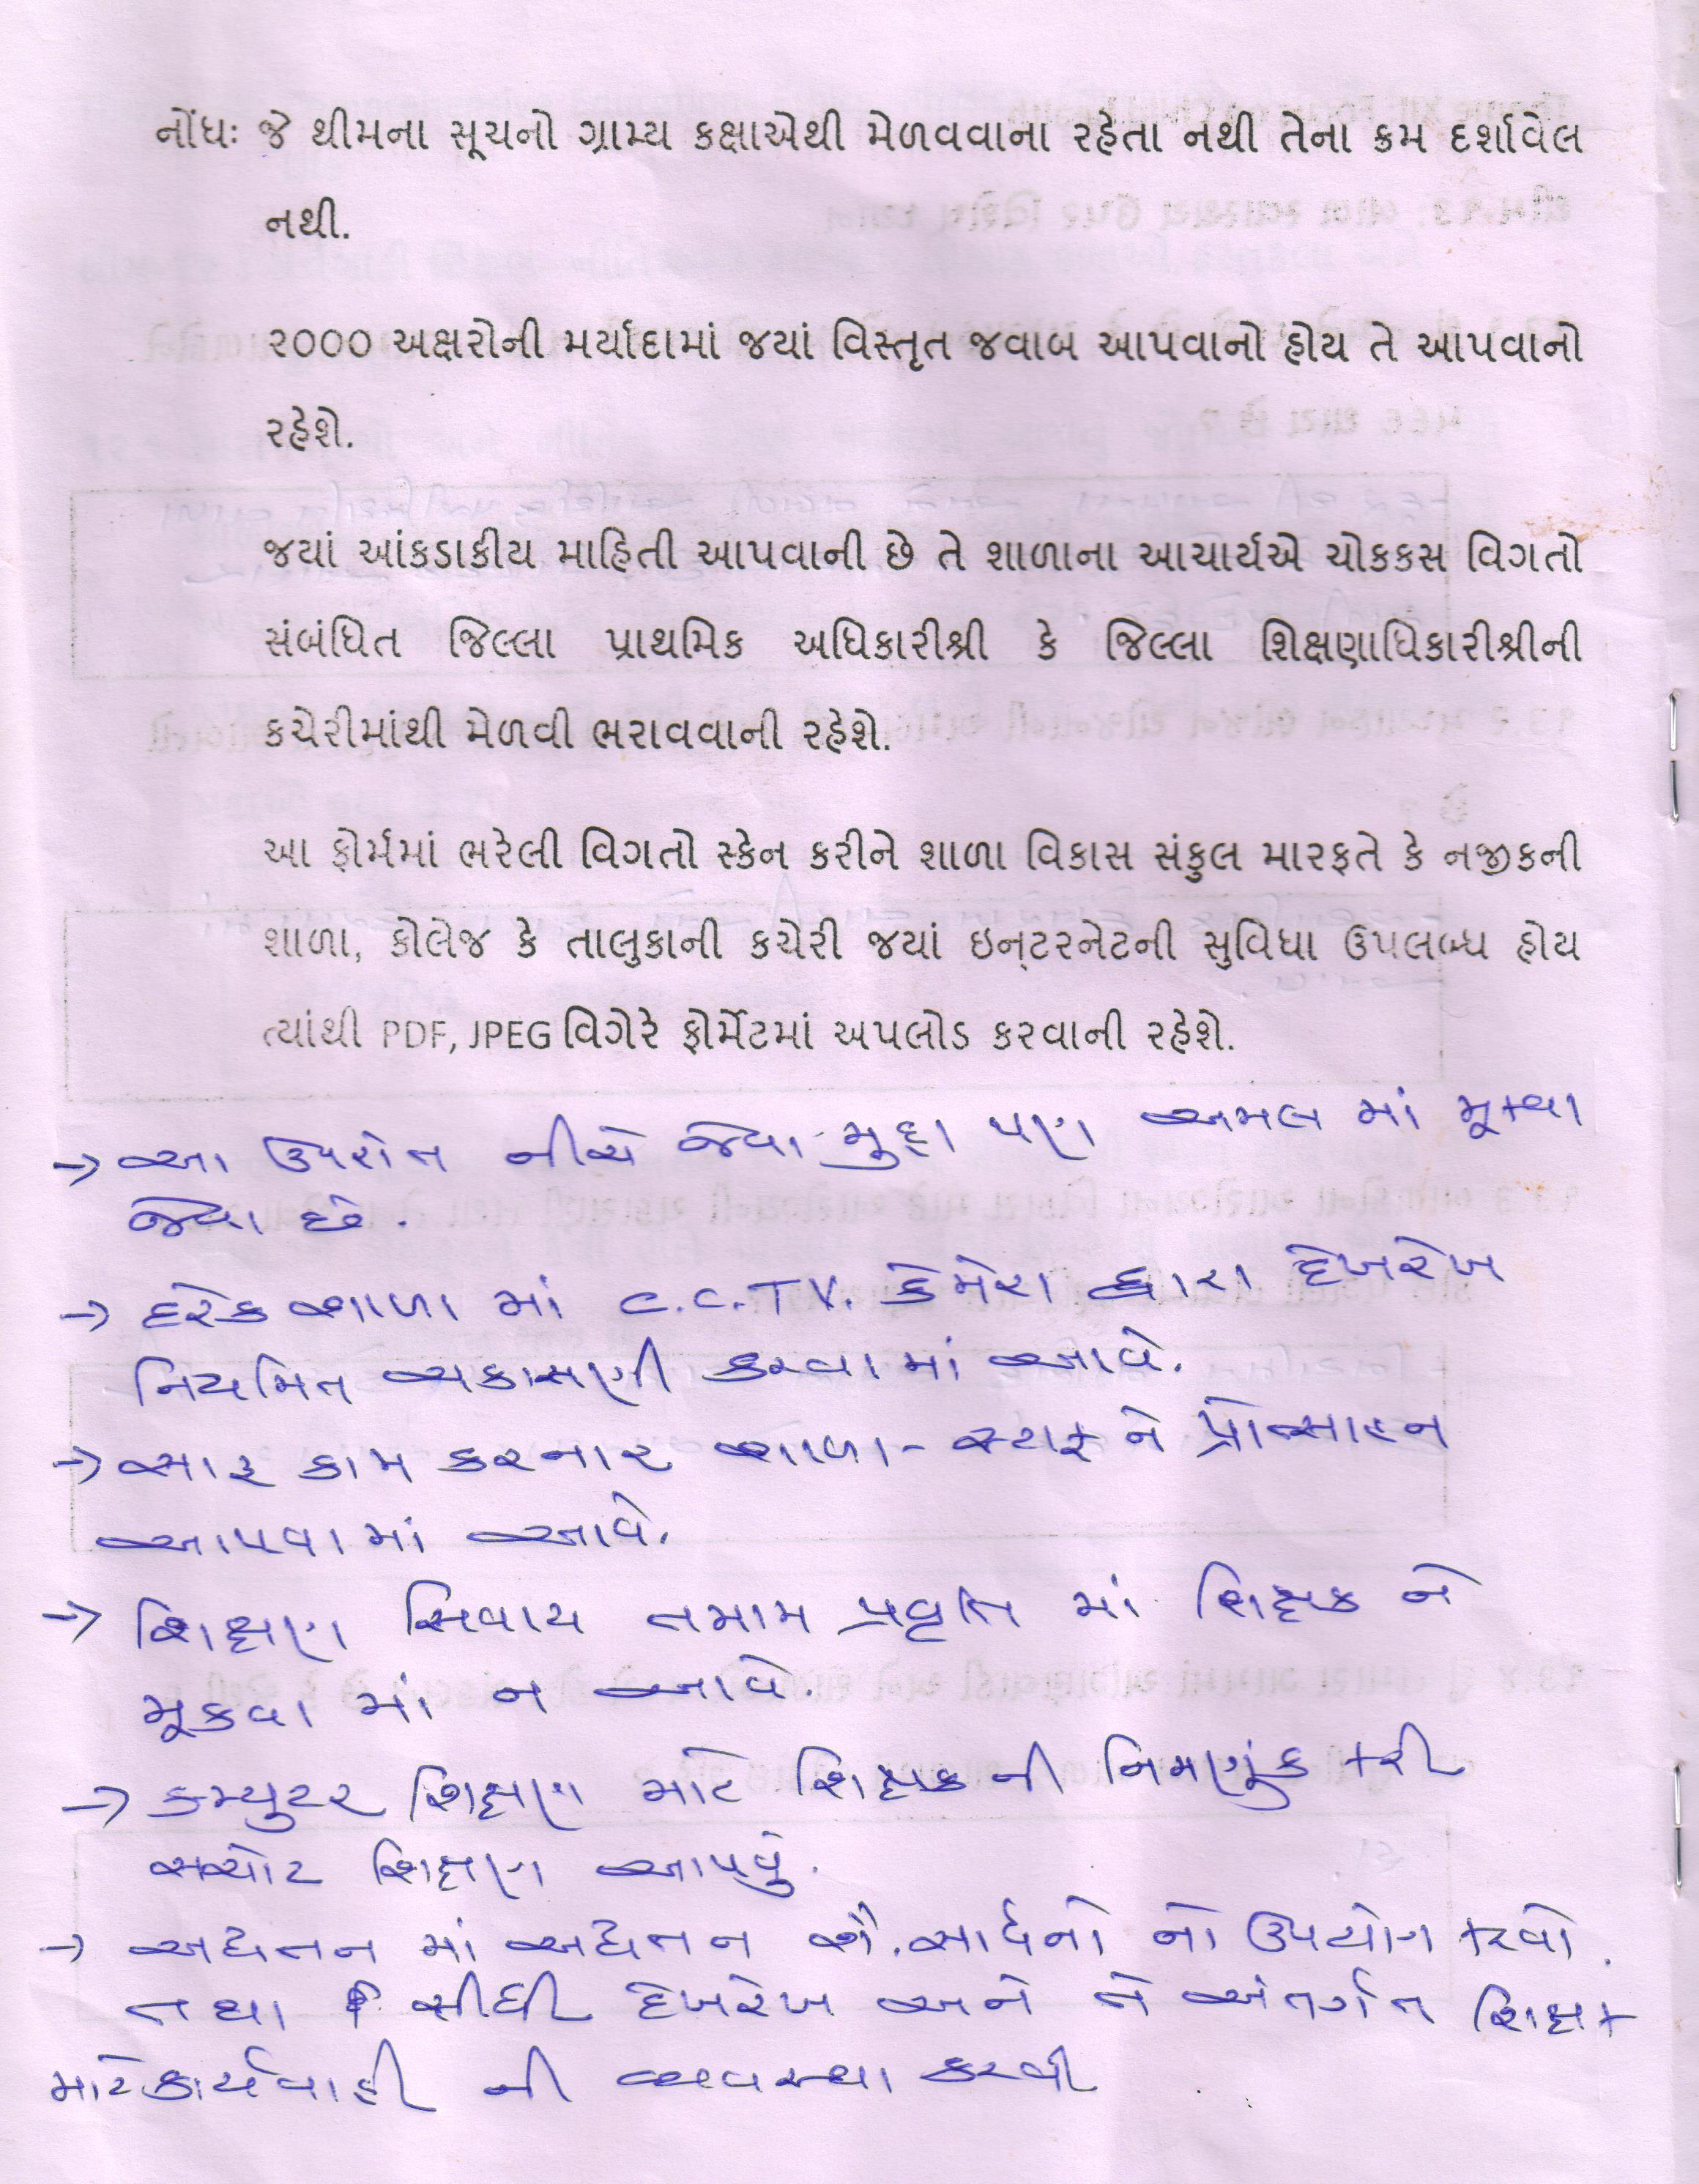 નોંધઃ જે થીમના સૂચનો ગ્રામ્ય કક્ષાએથી મેળવવાના રહેતા નથી તેના ક્રમ દર્શાવેલ
નથી.
૨૦૦૦ અક્ષરોની મર્યાદામાં જયાં વિસ્તૃત જવાબ આપવાનો હોય તે આપવાનો
રહેશે.
જયાં આંકડાકીય માહિતી આપવાની છે તે શાળાના આચાર્યએ ચોકકસ વિગતો
સંબંધિત જિલ્લા પ્રાથમિક અધિકારીશ્રી કે જિલ્લા શિક્ષણાધિકારીશ્રીની
કચેરીમાંથી મેળવી ભરાવવાની રહેશે.
આ ફોર્મમાં ભરેલી વિગતો સ્કેન કરીને શાળા વિકાસ સંકુલ મારફતે કે નજીકની
શાળા, કોલેજ કે તાલુકાની કચેરી જયાં ઇન્ટરનેટની સુવિધા ઉપલબ્ધ હોય
ત્યાંથી PDF, JPEG વિગેરે ફોર્મેટમાં અપલોડ કરવાની રહેશે.
→ આ ઉપરોત નીચે જેવા મુદ્દા પણ અમલ માં મૂકવા
જેવા છે.
→ દરેક શાળા માં C.C.TV. કેમેરા દ્વારા દેખરેખ
નિયમિત ચકાસણી કરવા માં આવે.
→ સારૂ કામ કરનાર શાળા - સ્ટાફ ને પ્રોત્સાહન
આપવા માં આવે.
→ શિક્ષણ સિવાય તમામ પ્રવૃતિ માં શિક્ષક ને
મૂકવા માં ન આવે.
→ કમ્યુટર શિક્ષણ માટે શિક્ષક ની નિમણુંક કરી
સચોટ શિક્ષણ આપવું.
→ અદ્યતન માં અદ્યતન શૈ. સાધનો નો ઉપયોગ કરવો.
તથા સીધી દેખરેખ અને તે અંતર્ગત શિક્ષક
માટે કાર્યવાહી ની વ્યવસ્થા કરવી